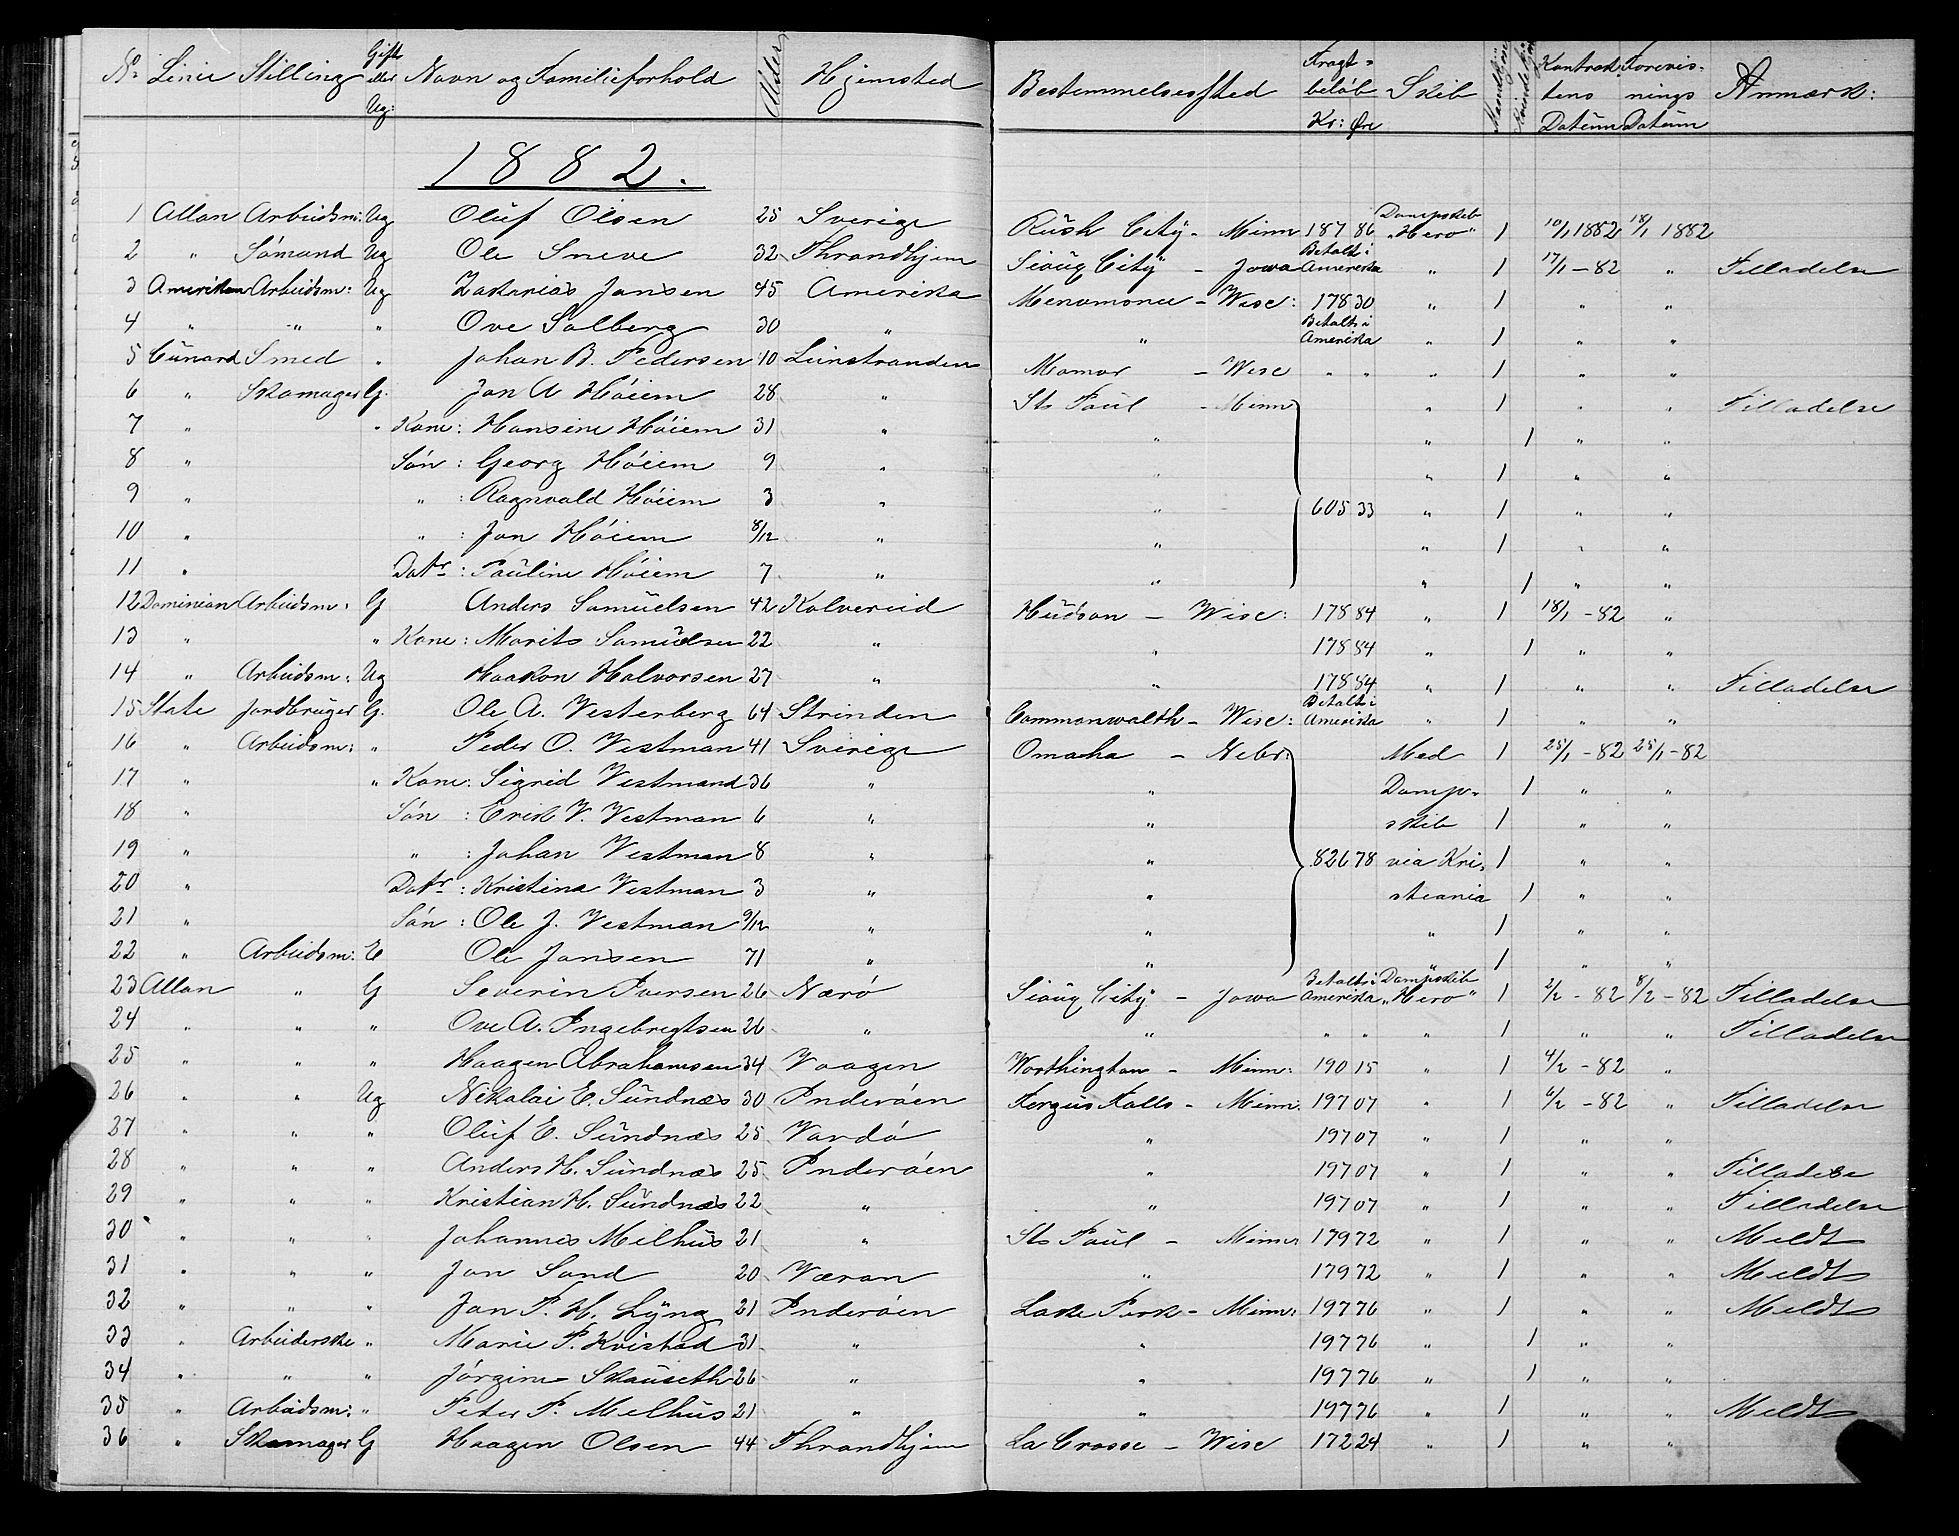 No. Linie Stilling Gift eller Ug: Navn og Familieforhold Alder Hjemsted Bestemmelsessted Fragtbeløb Kr: Øre Skib Mandkjøn Kvindekjøn Kontraktens Datum Forevisnings Datum Anmærk:
1882.
1 Allan Arbeidsm: Ug Oluf Olsen 25 Sverige Rush City - Minn 187 86 Dampskib "Hero" 1 10/1 1882 18/1 1882
2 " Sømand Ug Ole Sneve 32 Thrandhjem Sioux City - Jowa Betalt i Amerika " 1 17/1 - 82 " Tilladelse
3 Amerikan Arbeidsm: Ug Zakarias Jansen 45 Amerika Menomonee - Wisc: 178 30 " 1 " "
4 " " " Ove Solberg 30 " " Betalt i Amerika " 1 " "
5 Cunard Smed " Johan B. Pedersen 40 Leinstranden - Wisc " " " 1 " "
6 " Skomager G. Jon A Høiem 28 " St Paul - Minn " 1 " " Tilladelse
7 " " Kone: Hansine Høiem 31 " " " 1 " "
8 " Søn: Georg Høiem 9 " " " 1 " "
9 " " : Ragnvald Høiem 3 " " 605 33 " 1 " "
10 " " : Jon Høiem 8/12 " " " 1 " "
11 " Datr: Pauline Høiem 7 " " " 1 " "
12 Dominian Arbeidsm: G Anders Samuelsen 42 Kolvereid Hudson - Wisc: 178 84 " 1 18/1 - 82 "
13 " " Kone: Marits Samuelsen 22 " " 178 84 " 1 " "
14 " Arbeidsm: Ug Haakon Halvorsen 27 " " 178 84 " 1 " " Tilladelse
15 State Jordbruger G. Ole A. Vesterberg 64 Strinden Commonwalth - Wisc: Betalt i Amerika " 1 " "
16 " Arbeidsm: " Peder O. Vestman 41 Sverige Omaha - Nebr: Med 1 25/1 - 82 25/1 - 82
17 " " Kone: Sigrid Vestmand 36 " " Damp- 1 " "
18 " Søn: Erik V. Vestman 6 " " skib 1 " "
19 " " : Johan Vestman 8 " " 826 78 via Kri- 1 " "
20 " Datr: Kristina Vestman 3 " " stiania 1 " "
21 " Søn: Ole J. Vestman 9/12 " " " 1 " "
22 " Arbeidsm: E Ole Jansen 71 " " " 1 " "
23 Allan " G Severin Iversen 26 Nærø Sioux City - Jowa Betalt i Amerika Dampskib "Hero" 1 2/2 - 82 8/2 - 82 Tilladelse
24 " " " Ove A. Ingebregtsen 26 " " " " " 1 " " Tilladelse
25 " " " Haagen Abrahamsen 34 Vaagen Worthington - Minn: 190 15 " 1 4/2 - 82 "
26 " " Ug Nikolai E. Sundnæs 30 Inderøen Fergus Falls - Minn: 197 07 " 1 6/2 - 82 " Tilladelse
27 " " " Oluf E. Sundnæs 25 Vardø " 197 07 " 1 " "
28 " " " Anders H. Sundnæs 25 Inderøen " 197 07 " 1 " " Tilladelse
29 " " " Kristian H. Sundnæs 22 " " 197 07 " 1 " " Tilladelse
30 " " " Johannes Melhus 21 " St Paul - Minn: 179 72 " 1 " " Meldt
31 " " " Jon Sand 20 Væran " 179 72 " 1 " " Meldt
32 " " " Jon P. H. Lyng 21 Inderøen Lake Park - Minn: 197 76 " 1 " " Meldt
33 " Arbeiderske " Marie P. Kvistad 31 " " 197 76 " 1 " "
34 " " " Jørgine Skauseth 26 " " 197 76 " 1 " "
35 " Arbeidsm: " Peter P. Melhus 21 " " 197 76 " 1 " " Meldt
36 " Skomager G Haagen Olsen 44 Thrandhjem La Crosse - Wisc 172 24 " 1 " "